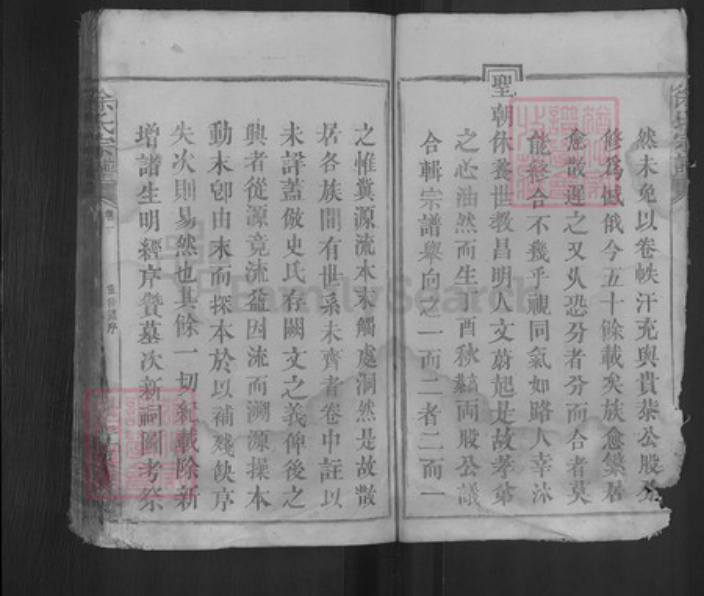 然未免以卷帙汗充與貴榮公股分
修為憾俄今五十餘載矣族愈繁居
愈散遲之又久恐分者分而合者莫
能終合不幾乎視同氣如路人幸沐
聖朝休養世教昌明人文蔚起是故孝弟
之心油然而生丁酉秋喬兩股公議
合輯宗譜舉向之一而二者二而一
之惟冀源流本末觸處洞然是故散
居各族間有世系未齊者卷中註以
未詳蓋倣史氏存闕文之義俾後之
興者從源竟流益因流而溯源操本
動末卽由末而探本於以補殘缺序
失次則易然也其餘一切紀載除新
增諸生明經序贊墓次新祠圖考祭
徐氏宗譜
卷一
重修譜序
徐氏宗譜
FamilySearch